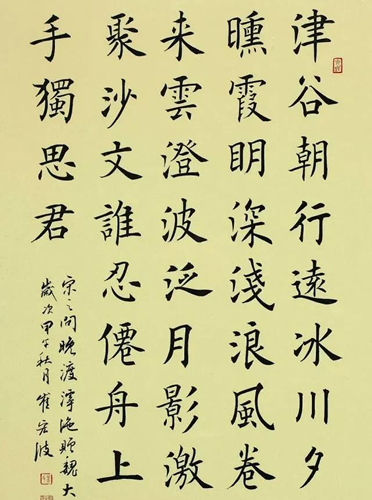 津谷朝行遠冰川夕
曛霞眀深淺浪風卷
来雲澄波泛月影激
聚沙文誰忍僊舟上
手獨思君
宋之问晚渡滹沱赠魏大
歲次甲午秋月崔宏波